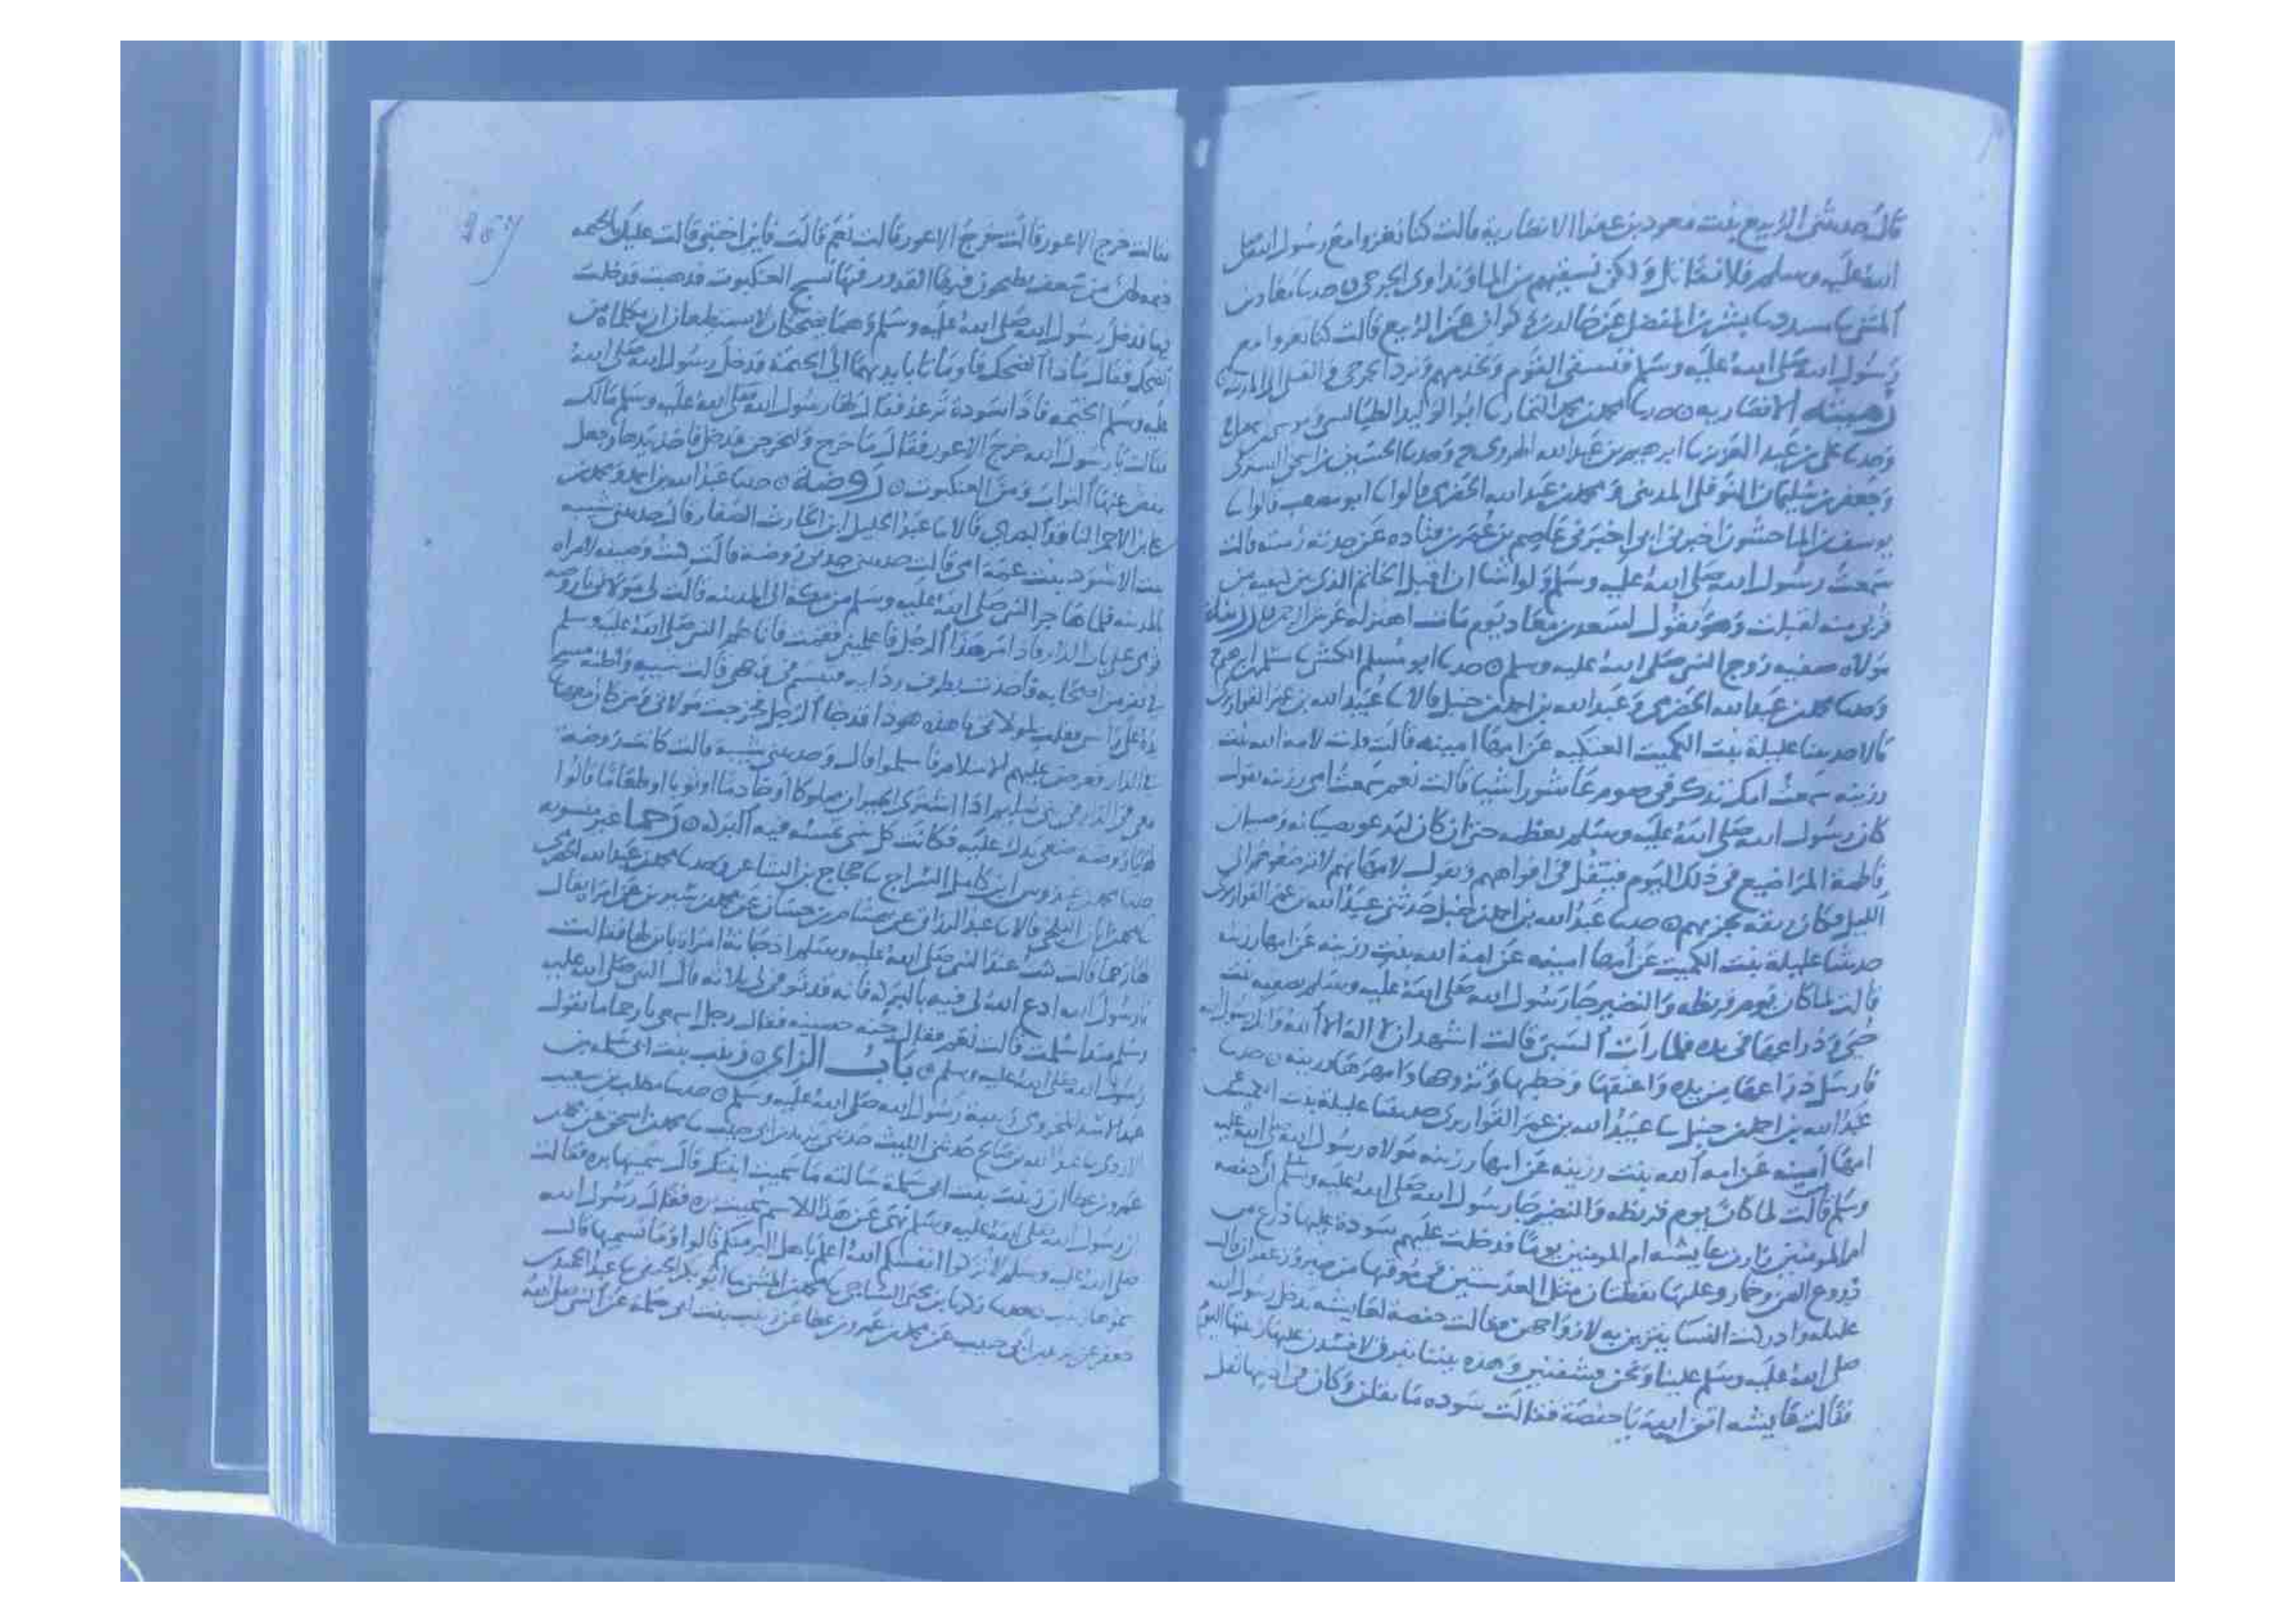 قال حدثتني الربيع بنت معوذ بن عفرا الانصارية قالت كنا نغزوا مع رسول الله صلى
الله عليه وسلم فلا نقاتل ولكن نسقيهم من الماء ونداوي الجرحى حدثنا معاذ بن
المثنى ثنا مسدد ثنا بشر بن المفضل عن خالد بن ذكوان عن الربيع قالت كنا نغزوا مع
رسول الله صلى الله عليه وسلم فنسقي القوم ونخدمهم ونرد الجرحى والقتلى الى المدينة
رميثه الانصاريه حدثنا محمد بن محمد التمار ثنا ابو الوليد الطيالسي
وحدثنا علي بن عبد العزيز ثنا ابرهيم بن عبد الله الهروي ح وحدثنا الحسين بن اسحق التستري
وجعفر بن سليمان النوفلي المديني ومحمد بن عبد الله الحضرمي قالوا ثنا ابو مصعب قالوا ثنا
يوسف بن الماجشون اخبرني ابي اخبرني عاصم بن عمر بن قتاده عن جدته رميثه قالت
سمعت رسول الله صلى الله عليه وسلم ولو اشا ان اقبل الخاتم الذي بين كتفيه من
قربي منه لقبلت وهو يقول لسعد بن معاذ يوم مات اهتز له عرش الرحمن رزينة
مولاه صفيه زوج النبي صلى الله عليه وسلم حدثنا ابو مسلم الكشي ثنا مسلم بن ابرهيم ح
وحدثنا محمد بن عبد الله الحضرمي وعبد الله بن احمد بن حنبل قالا ثنا عبيد الله بن عمر القواريري
قالا حدثتنا عليلة بنت الكميت العتكيه عن امها امينه قالت قلت لامة الله بنت
رزينه سمعت امك تذكر في صوم عاشورا شيا قالت نعم سمعت امي رزينه تقول
كان رسول الله صلى الله عليه وسلم يعظمه حتى ان كان ليدعو بصبيانه وصبيان
فاطمة المراضيع في ذلك اليوم فيتفل في افواههم ويقول لامهاتهم لا ترضعوهم الى
الليل وكان ريقه يجزيهم حدثنا عبد الله بن احمد بن حنبل حدثني عبيد الله بن عمر القواريري
حدثتنا عليلة بنت الكميت عن امها امينه عن امة الله بنت رزينه عن امها رزينه
قالت لما كان يوم قريظه والنضير جا رسول الله صلى الله عليه وسلم بصفيه بنت
حيي وذراعها في يده فلما رات السبي قالت اشهد ان لا اله الا الله وانك رسول الله
فارسل ذراعها من يده واعتقها وخطبها وتزوجها وامهرها رزينه حدثنا
عبد الله بن احمد بن حنبل ثنا عبيد الله بن عمر القواريري حدثتنا عليلة بنت الكميت عن
امها امينه عن امه الله بنت رزينه عن امها رزينه مولاه رسول الله صلى الله عليه
وسلم قالت لما كان يوم قريظه والنضير جا رسول الله صلى الله عليه وسلم ان حفصه
ام المومنين زارت عايشه ام المومنين يوما فدخلت عليهم سوده عليها درع من
دروع اليمن وخمار وعليها نقطتان مثل العدستين في موقها من صبر وزعفران قالت
عليله وادركت النسا يتزين به لازواجهن فقالت حفصة لعايشه يدخل رسول الله
صلى الله عليه وسلم علينا ونحن قشفتين وهذه بيننا تبرق لافسدن عليها زينتها اليوم
فقالت عايشه اتقي الله يا حفصة فقالت سوده ما تقلن وكان في اذنيها ثقل
فقالت خرج الاعور قالت خرج الاعور قالت نعم قالت فاين اختبي قالت عليك بالخيمه
خيمه لهن من سعف يطبخون فيها القدور فيها نسج العنكبوت فذهبت فدخلت
فيها فدخل رسول الله صلى الله عليه وسلم وهما تضحكان لا تستطيعان ان تكلماه من
الضحك فقال ماذا الضحك فاومانا بايديهما الى الخيمة فدخل رسول الله صلى الله
عليه وسلم الخيمه فاذا سودة ترعد فقال لها رسول الله صلى الله عليه وسلم مالك
فقالت يا رسول الله خرج الاعور فقال ما خرج وليخرجن فدخل فاخذ بيدها وجعل
ينفض عنها التراب ومن العنكبوت روضة حدثنا عبد الله بن احمد ومحمد بن
علي بن الاحمر الناقد البصري قالا ثنا عبد الجليل بن الحارث الصفار قال حدثتني شيبه
بنت الاسود بنت عمة ابي قالت حدثتني روضة قالت كنت وصيفه لامراه
بالمدينه فلما هاجر النبي صلى الله عليه وسلم من مكة الى المدينه قالت لي مولاتي يا روضه
قومي على باب الدار فاذا مر هذا الرجل فاعلميني فقمت فاذا هو النبي صلى الله عليه وسلم
في نفر من اصحابه فاخذت بطرف ردايه فتبسم في وجهي قالت شيبه واظنه مسح
يده على راسي فقلت لمولاتي يا هذه هوذا قد جا الرجل فخرجت مولاتي ومن كان معها
في الدار فعرض عليهم الاسلام فاسلموا قال وحدثتني شيبه قالت كانت روضة
معي في الدار في بني سليم اذا اشترى الجيران مملوكا او خادما او ثوبا او طعاما قالوا
لها يا روضه ضعي يدك عليه فكانت كل شي تمسه فيه البركه رحما غير منسوبه
حدثنا محمد بن عبدوس بن كامل السراج ثنا حجاج بن الشاعر وحدثنا محمد بن عبد الله الحضرمي
ثنا محمد بن ابان البلخي قالا ثنا عبد الرزاق عن هشام بن حسان عن محمد بن سيرين عن امراة يقال
لها رحما قالت كنت عند النبي صلى الله عليه وسلم اذ جاته امراة بابن لها فقالت
يا رسول الله ادع الله لي فيه بالبركه فانه قد توفي لي ثلاثه قال النبي صلى الله عليه
وسلم منذ اسلمت قالت نعم فقال جنه حصينه فقال رجل اسمعي يا رحما ما يقول
رسول الله صلى الله عليه وسلم باب الزاي زينب بنت ابي سلمه بن
عبد الاسد المخزومي ربيبة رسول الله صلى الله عليه وسلم حدثنا مطلب بن شعيب
الازدي ثنا عبد الله بن صالح حدثني الليث حدثني يزيد بن ابي حبيب ثنا محمد بن اسحق عن محمد بن
عمرو بن عطا ان زينب بنت ابي سلمة سالته ما سميت ابنتك قال سميتها بره فقالت
ان رسول الله صلى الله عليه وسلم نهى عن هذا الاسم سميت بره فقال رسول الله
صلى الله عليه وسلم لا تزكوا انفسكم الله اعلم باهل البر منكم قالوا وما نسميها قال
سموها زينب حدثنا زكريا بن يحيى الساجي ثنا محمد بن المثنى ثنا ابو بكر الحنفي ثنا عبد الحميد بن
جعفر عن يزيد بن ابي حبيب عن محمد بن عمرو بن عطا عن زينب بنت ابي سلمة عن النبي صلى الله